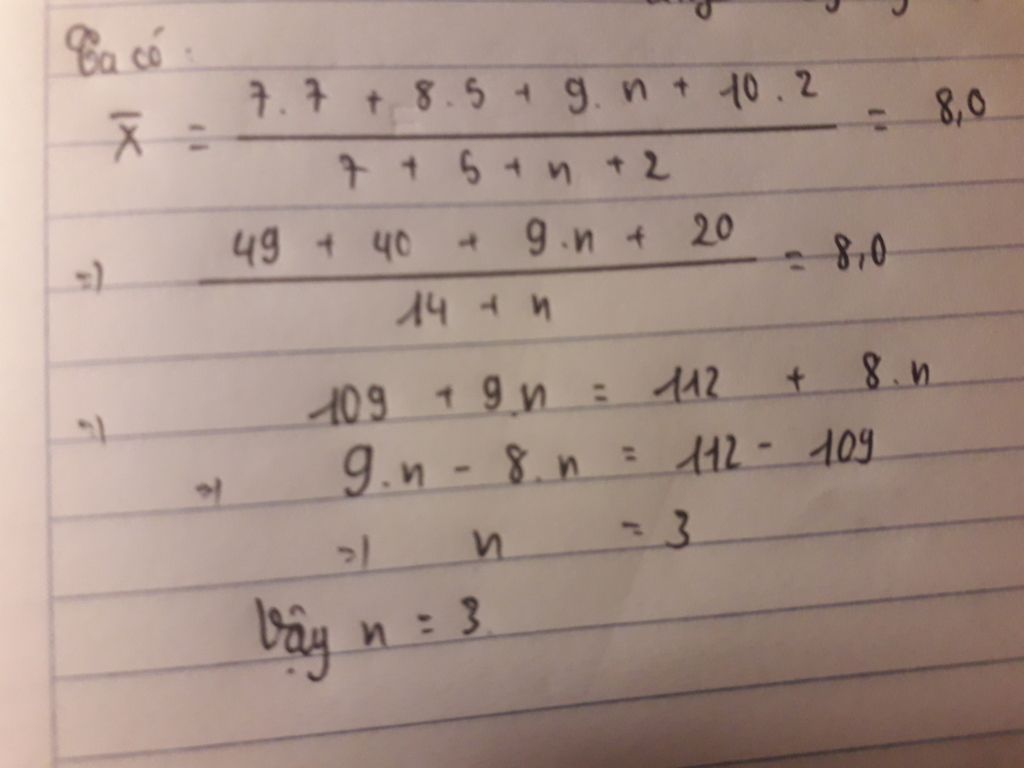 Ta có:
X̄ = (7.7 + 8.5 + 9.n + 10.2) / (7 + 5 + n + 2) = 8,0
=> (49 + 40 + 9.n + 20) / (14 + n) = 8,0
=> 109 + 9.n = 112 + 8.n
=> 9.n - 8.n = 112 - 109
=> n = 3
Vậy n = 3.